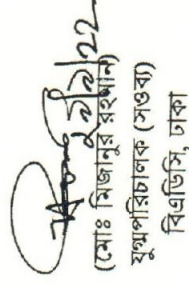 (মোঃ মিজানুর রহমান)
যুগ্মপরিচালক (সওব)
বিএডিসি, ঢাকা